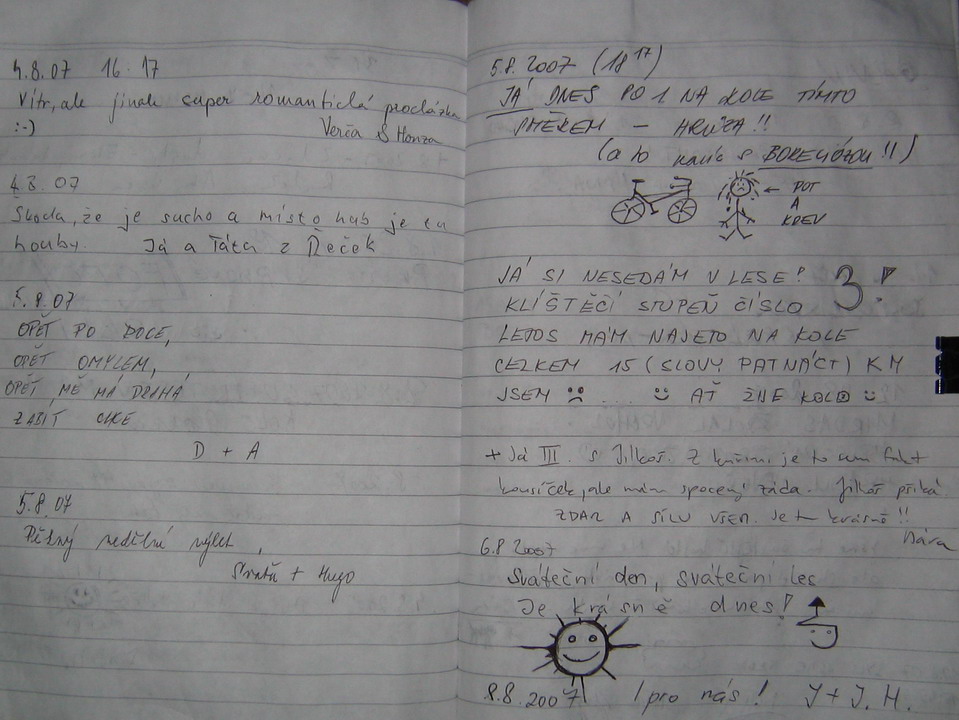 4.8.07 16.17
Vítr, ale jinak super romantická procházka
:-) Verča & Honza
4.8.07
Škoda, že je sucho a místo hub je tu
houby. Já a Táta z Řeček
5.8.07
OPĚT PO ROCE,
OPĚT OMYLEM,
OPĚT MĚ MÁ DRAHÁ
ZABÍT CHCE
D + A
5.8.07
Pěkný nedělní výlet,
+ Hugo
5.8.2007 (18 17)
JÁ DNES PO 1 NA KOLE TÍMTO
SMĚREM – HRŮZA!!
(a to navíc s BORELIÓZOU!!)
← POT
A
KREV
JÁ SI NESEDÁM V LESE!
KLÍŠTĚČÍ STUPEŇ ČÍSLO 3!
LETOS MÁM NAJETO NA KOLE
CELKEM 15 (SLOVY PATNÁCT) KM
JSEM ... AŤ ŽIJE KOLO
+ Já III. s Jilkoš. Z kuřimi je to sem fakt
kousíček, ale mám spocený záda. Jilkoš přiká.
ZDAR A SÍLU VŠEM. Je t krásně!!
Nára
6.8 2007
Sváteční den, sváteční les
Je krásně dnes!
8.8.2007 I pro nás! J + J. H.